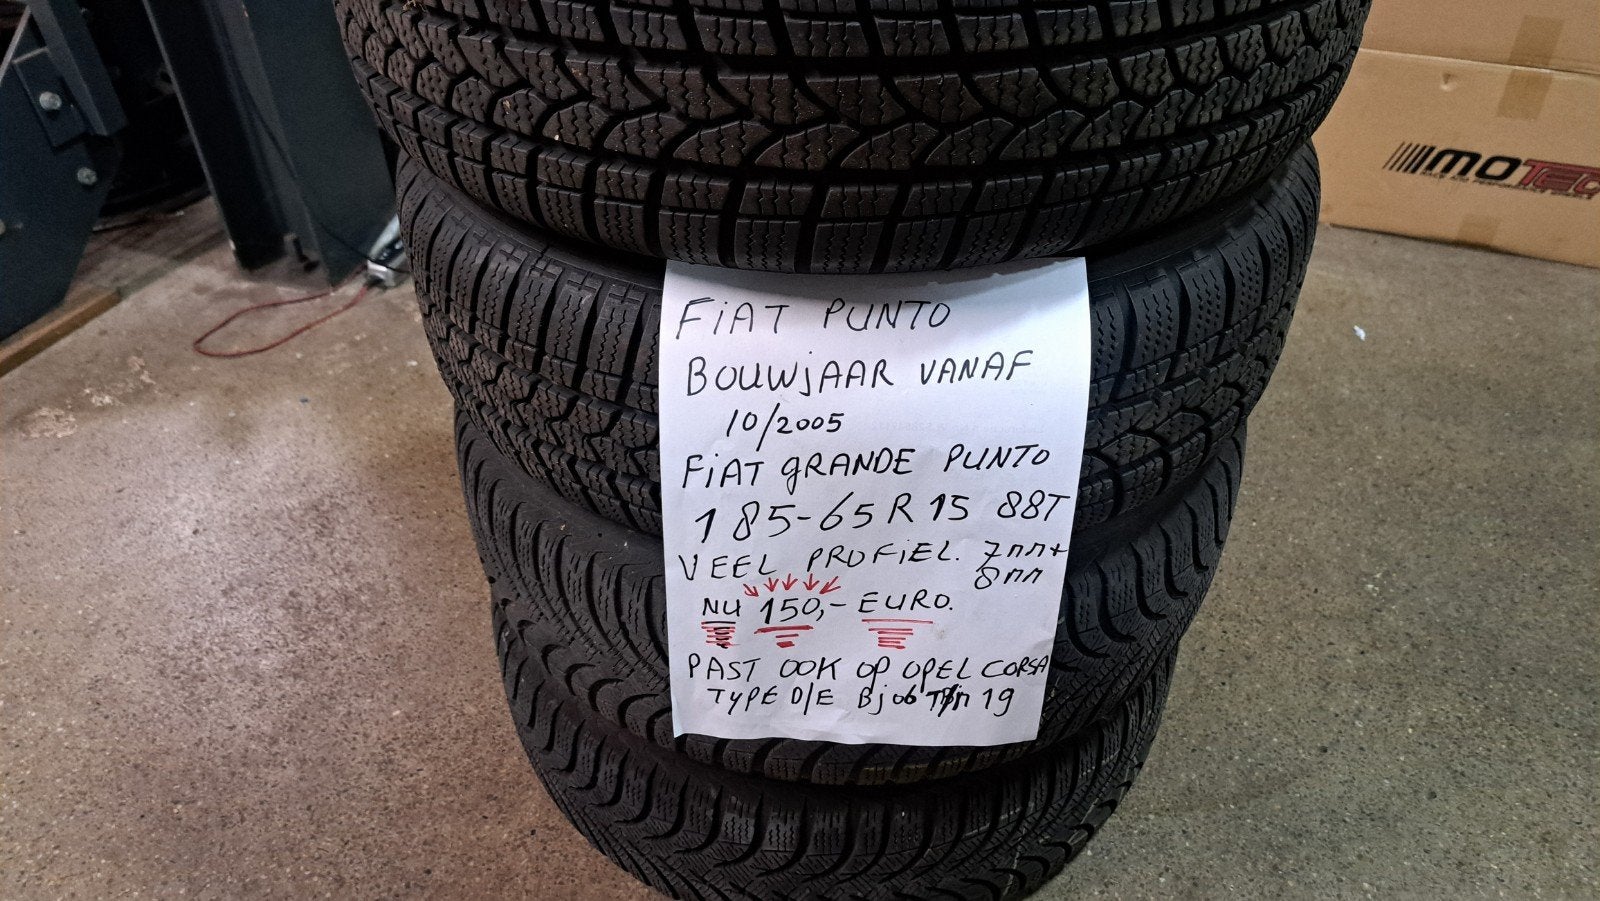 FiAT PUNTO
BOUWjAAR VANAF
10/2005
FiAT gRANDE PUNTO
185-65R15 88T
VEEL PROFiEL. 7mm+
8mm
NU 150,- EURO.
PAST OOK OP OPEL CORSA
TYPE D/E Bj 06 T/m 19
MOTEC